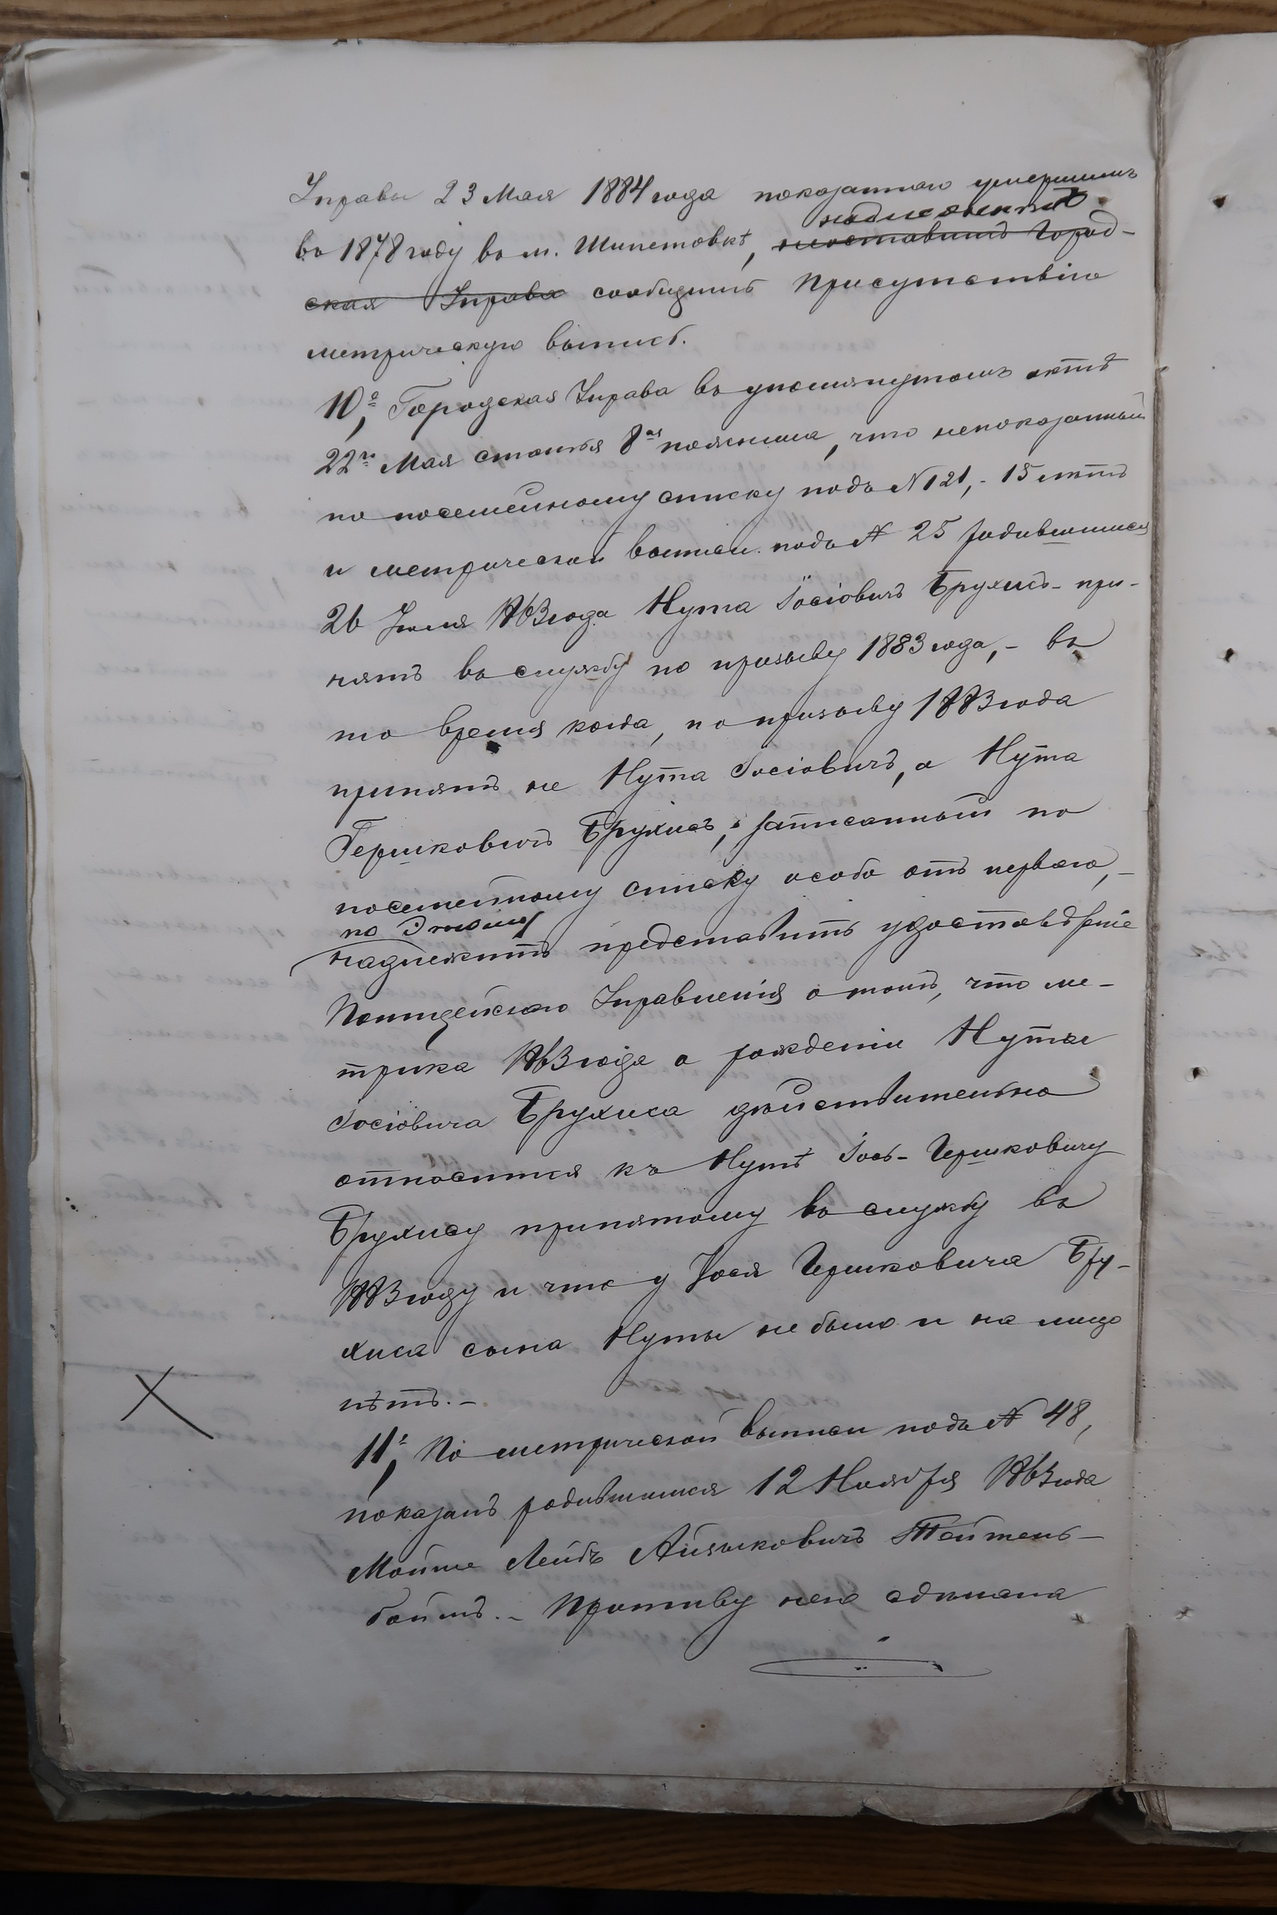 Управы 23 Мая 1884 года показаннаго умершимъ
надлежитъ
въ 1878 году въ м. Шипетовкѣ, недоставитъ Город-
ская Управа сообщить Присутствію
метрическую выпись.
10,º Городская Управа въ упомянутомъ актѣ
22го Мая статья 8ая пояснила, что непоказанный
по посемейному списку подъ №121,- 15 лѣтъ
и метрической выписи подъ № 25 родившимся
26 Іюля 1863 года Нута Іосіовичъ Брухисъ- при-
нятъ въ службу по призыву 1883 года,- въ
то время когда, по призыву 1883 года
принятъ не Нута Іосіовичъ, а Нута
Гершковичъ Брухисъ, записанный по
посемейному списку особо отъ перваго,-
по Этому
надлежитъ представить удостовѣреніе
Полицейскаго Управленія о томъ, что ме-
трика 1863 года о рожденіи Нуты
Іосіовича Брухиса дѣйствительно
относится къ Нутѣ Іось-Гершковичу
Брухису принятому въ службу въ
1883 году и что у Іося Гершковича Бру-
хиса сына Нуты не было и на лицо
нѣтъ.-
11,º По метрической выписи подъ № 48,
показанъ родившимся 12 Ноября 1863 года
Мойше Лейбъ Айзыковичъ Тейтель-
боймъ.- Противу него сдѣлана